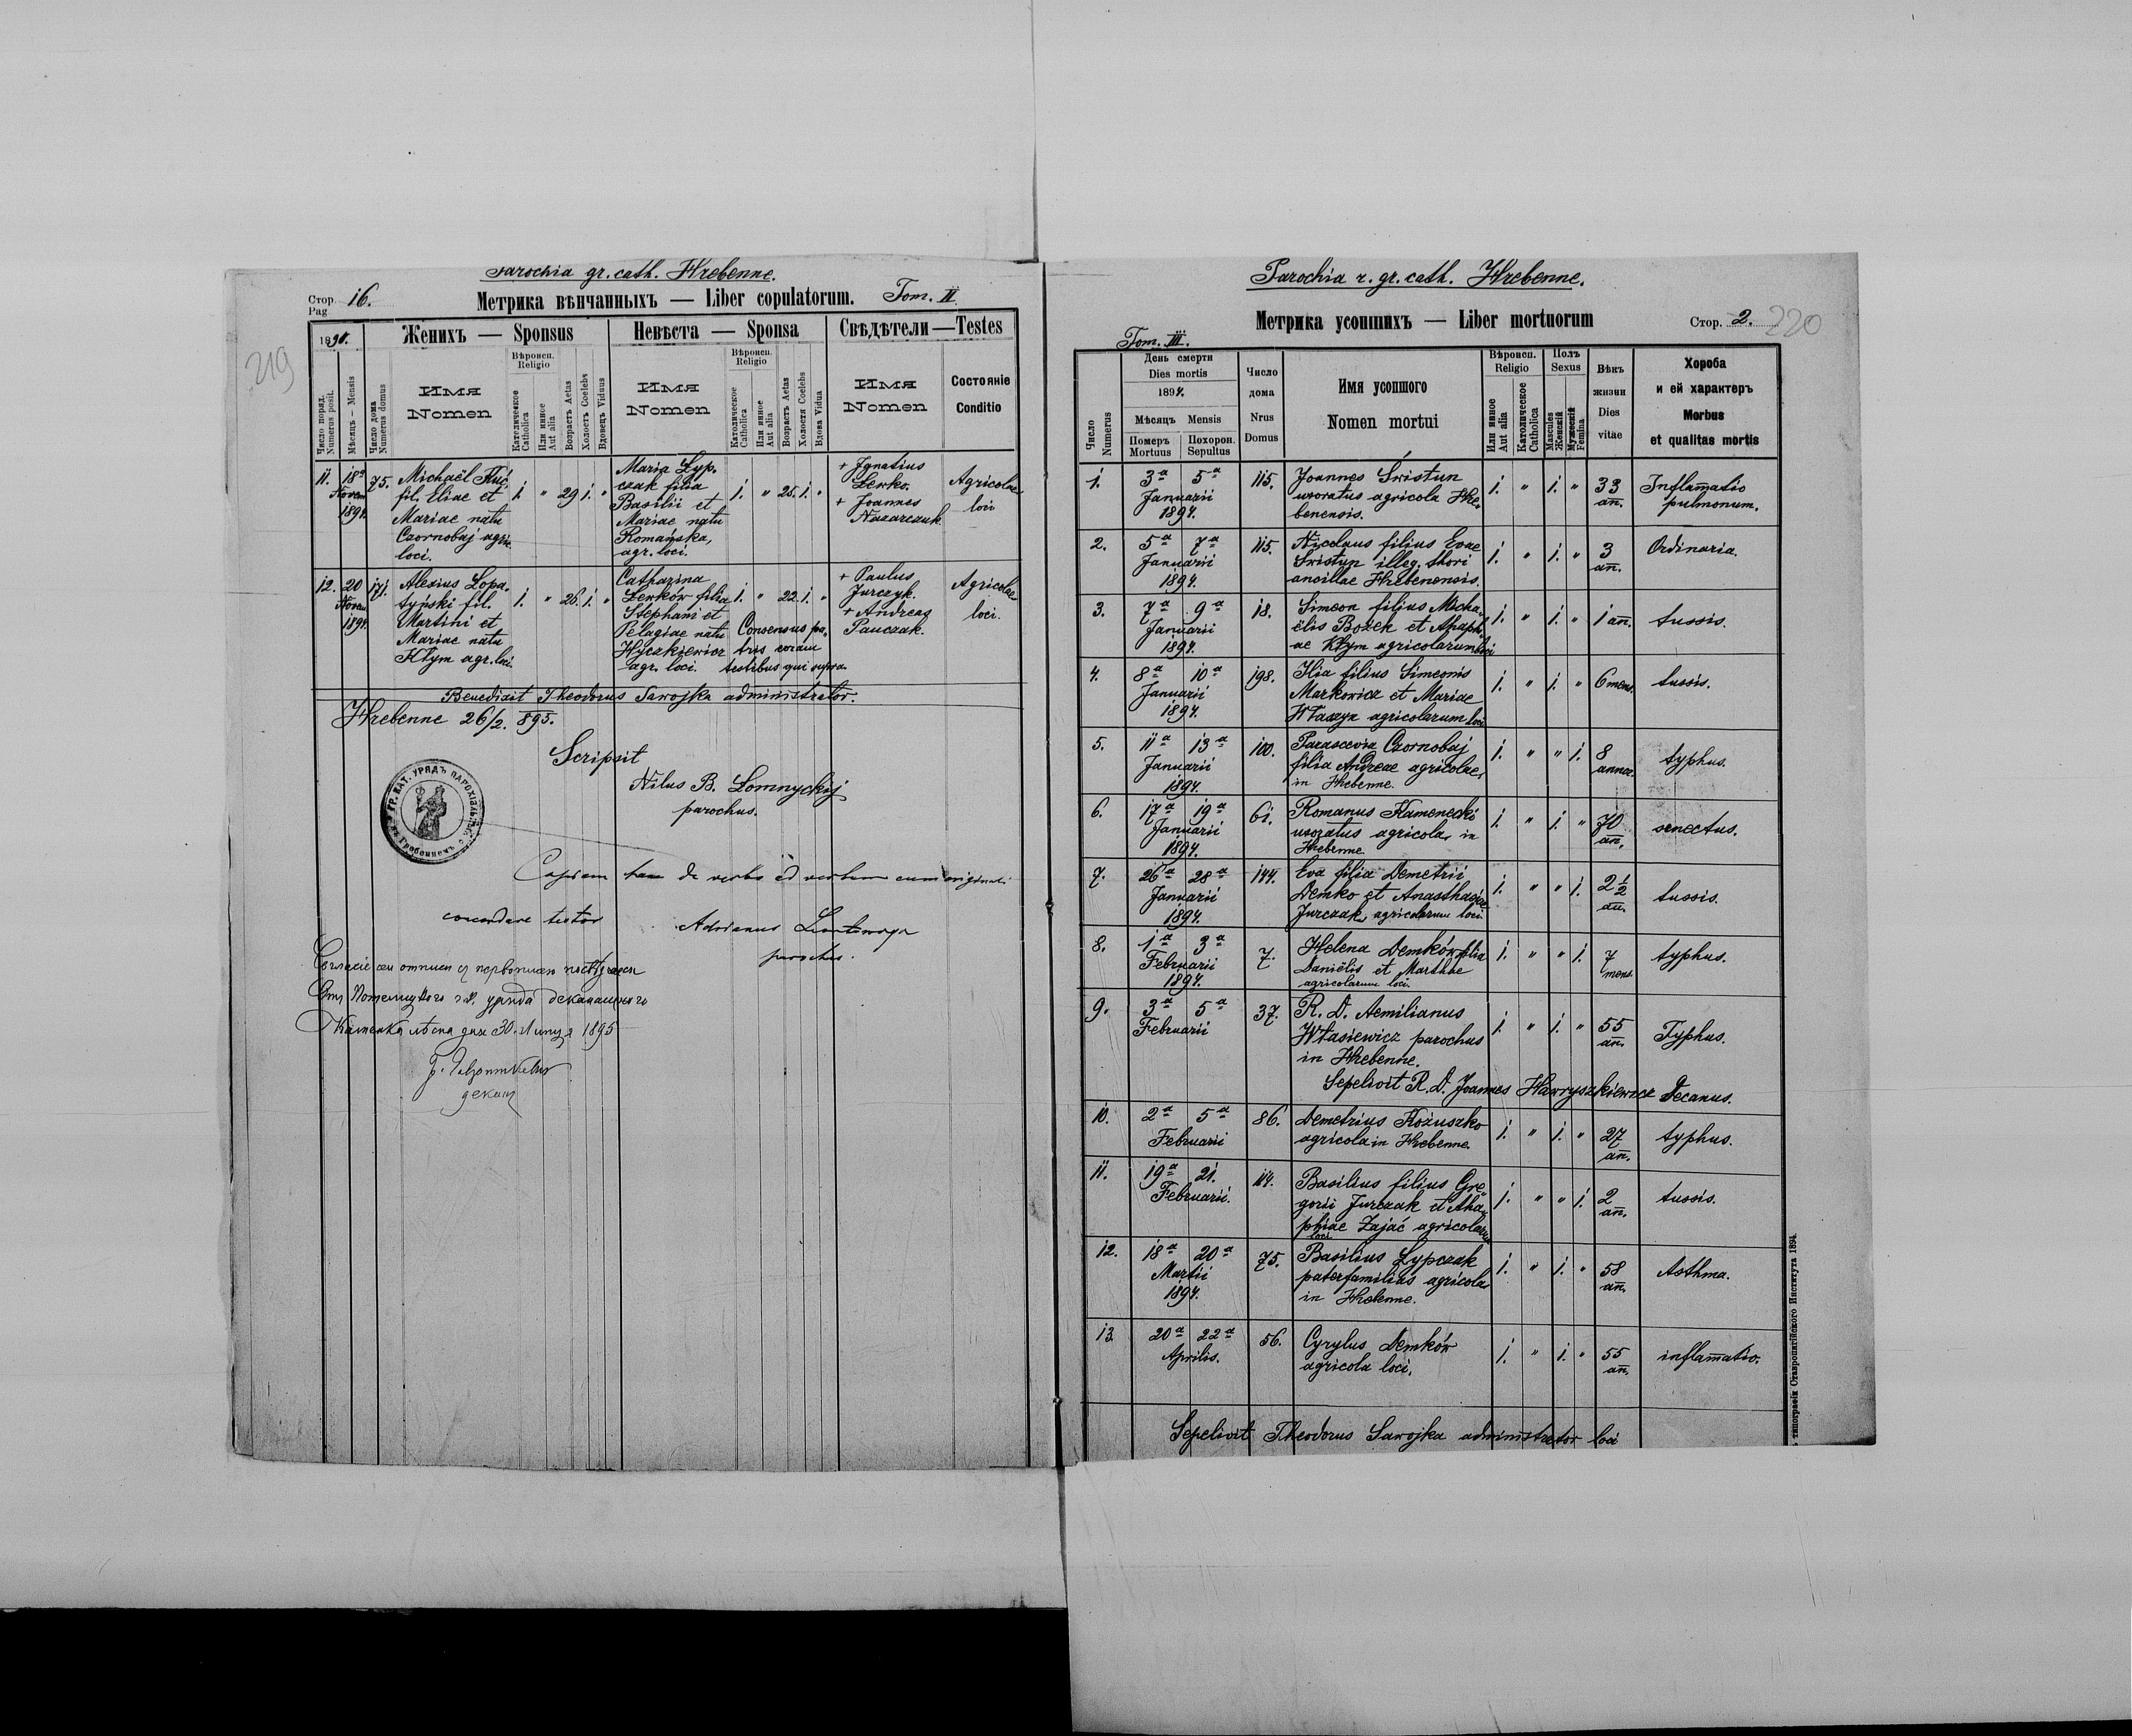 219
Parochia gr. cath. Hrebenne.
Стор. 16.
Pag
Метрика вѣнчанныхъ — Liber copulatorum. Tom. II
Женихъ — Sponsus
Невѣста — Sponsa
Свѣдѣтели — Testes
Число поряд.
Numerus posit.
Мѣсяць — Mensis
Число дома
Numerus domus
Имя
Nomen
Вѣроисп.
Religio
Католическое
Catholica
Или инное
Aut alia
Возрастъ Aetas
Холостъ Coelebs
Вдовецъ Viduus
Имя
Nomen
Вѣроисп.
Religio
Католическое
Catholica
Или инное
Aut alia
Возрастъ Aetas
Холоста Coelebs
Вдова Vidua
Имя
Nomen
Состояніе
Conditio
11. 18a Novem 1894. 75.
Michaël
fil. Eliae et
Mariae natu
Czornobaj agric.
loci.
1. " 29 1. "
Maria Łyp-
czak filia
Basilii et
Mariae natu
Romańska,
agr. loci.
1. " 25. 1. "
+ Ignatius
Lewko.
+ Joannes
Nazarczuk.
Agricolae
loci
12. 20 Novem 1894. 171.
Alexius Łopa-
tyński fil.
Martini et
Mariae natu
Kłym agr. loci.
1. " 26. 1. "
Catharina
Lewków filia
Stephani et
Pelagiae natu
Hyczkiewicz
agr. loci.
1. " 22. 1. "
Consensus pa-
tris coram
testibus qui supra.
+ Paulus
Jurczyk.
+ Andreas
Pauczak.
Agricolae
loci.
Benedixit Theodorus Sawojka administrator.
Hrebenne 26/2. 895.
Scripsit
Nilus B. Łomnyckij
parochus.
Copiam hanc de verbo ad verbum cum originali
concordare testor
Adrianus
parochus.
декан
Parochia r. gr. cath. Hrebenne.
Метрика усопшихъ — Liber mortuorum
Стор. 2.
220
Tom. III.
Число
Numerus
День смерти
Dies mortis
1894.
Мѣсяцъ Mensis
Померъ
Mortuus
Похорон.
Sepultus
Число
дома
Nrus
Domus
Имя усопшого
Nomen mortui
Вѣроисп.
Religio
Или инное
Aut alia
Католическое
Catholica
Полъ
Sexus
Mascules
Женскій
Мужескій
Femina
Вѣкъ
жизни
Dies
vitae
Хороба
и ей характеръ
Morbus
et qualitas mortis
1. 3a 5a Januarii 1894. 115.
Joannes Swistun
uxoratus agricola Hre-
benensis.
1. " 1. " 33 an. Inflamatio pulmonum.
2. 5a 7a Januarii 1894. 115.
Nicolaus filius Evae
Swistun illeg. thori
ancillae Hrebenensis.
1. " 1. " 3 an. Ordinaria.
3. 7a 9a Januarii 1894. 18.
Simeon filius Micha-
ëlis Bożek et Ahaph-
ae Kłym agricolarum loci
1. " 1. " 1 an. tussis.
4. 8a 10a Januarii 1894. 198.
Ilia filius Simeonis
Markowicz et Mariae
Właszyn agricolarum loci
1. " 1. " 6 mens. tussis.
5. 11a 13a Januarii 1894. 100.
Parascevia Czornobaj
filia Andreae agricolae
in Hrebenne.
1. " " 1. 8 annor. typhus.
6. 17a 19a Januarii 1894. 61.
Romanus Kamenecki
uxoratus agricola in
Hrebenne.
1. " 1. " 70 an. senectus.
7. 26a 28a Januarii 1894. 144.
Eva filia Demetrii
Demko et Anasthasiae
Jurczak agricolarum loci.
1. " " 1. 2 1/2 an. tussis.
8. 1a 3a Februarii 1894. 7.
Helena Demków filia
Daniëlis et Marthae
agricolarum loci.
1. " " 1. 7 mens. typhus.
9. 3a 5a Februarii 37.
R. D. Aemilianus
Własiewicz parochus
in Hrebenne.
1. " 1. " 55 an. Typhus.
Sepelivit R. D. Joannes Hawryszkiewicz Decanus.
10. 2a 5a Februarii 86.
Demetrius Kożuszko
agricola in Hrebenne.
1. " 1. " 27 an. typhus.
11. 19a 21. Februarii. 114.
Basilius filius Gre-
gorii Jurczak et Aha-
phiae Zając agricolarum
loci
1. " " 1. 2 an. tussis.
12. 18a 20a Martii 1894. 75.
Basilius Łypczak
paterfamilias agricola
in Hrebenne.
1. " 1. " 58 an. Asthma.
13. 20a 22a Aprilis. 56.
Cyrylus Demków
agricola loci.
1. " 1. " 55 an. inflamatio.
Sepelivit Theodorus Sawojka administrator loci
типографіи Ставропигійского Института 1894.